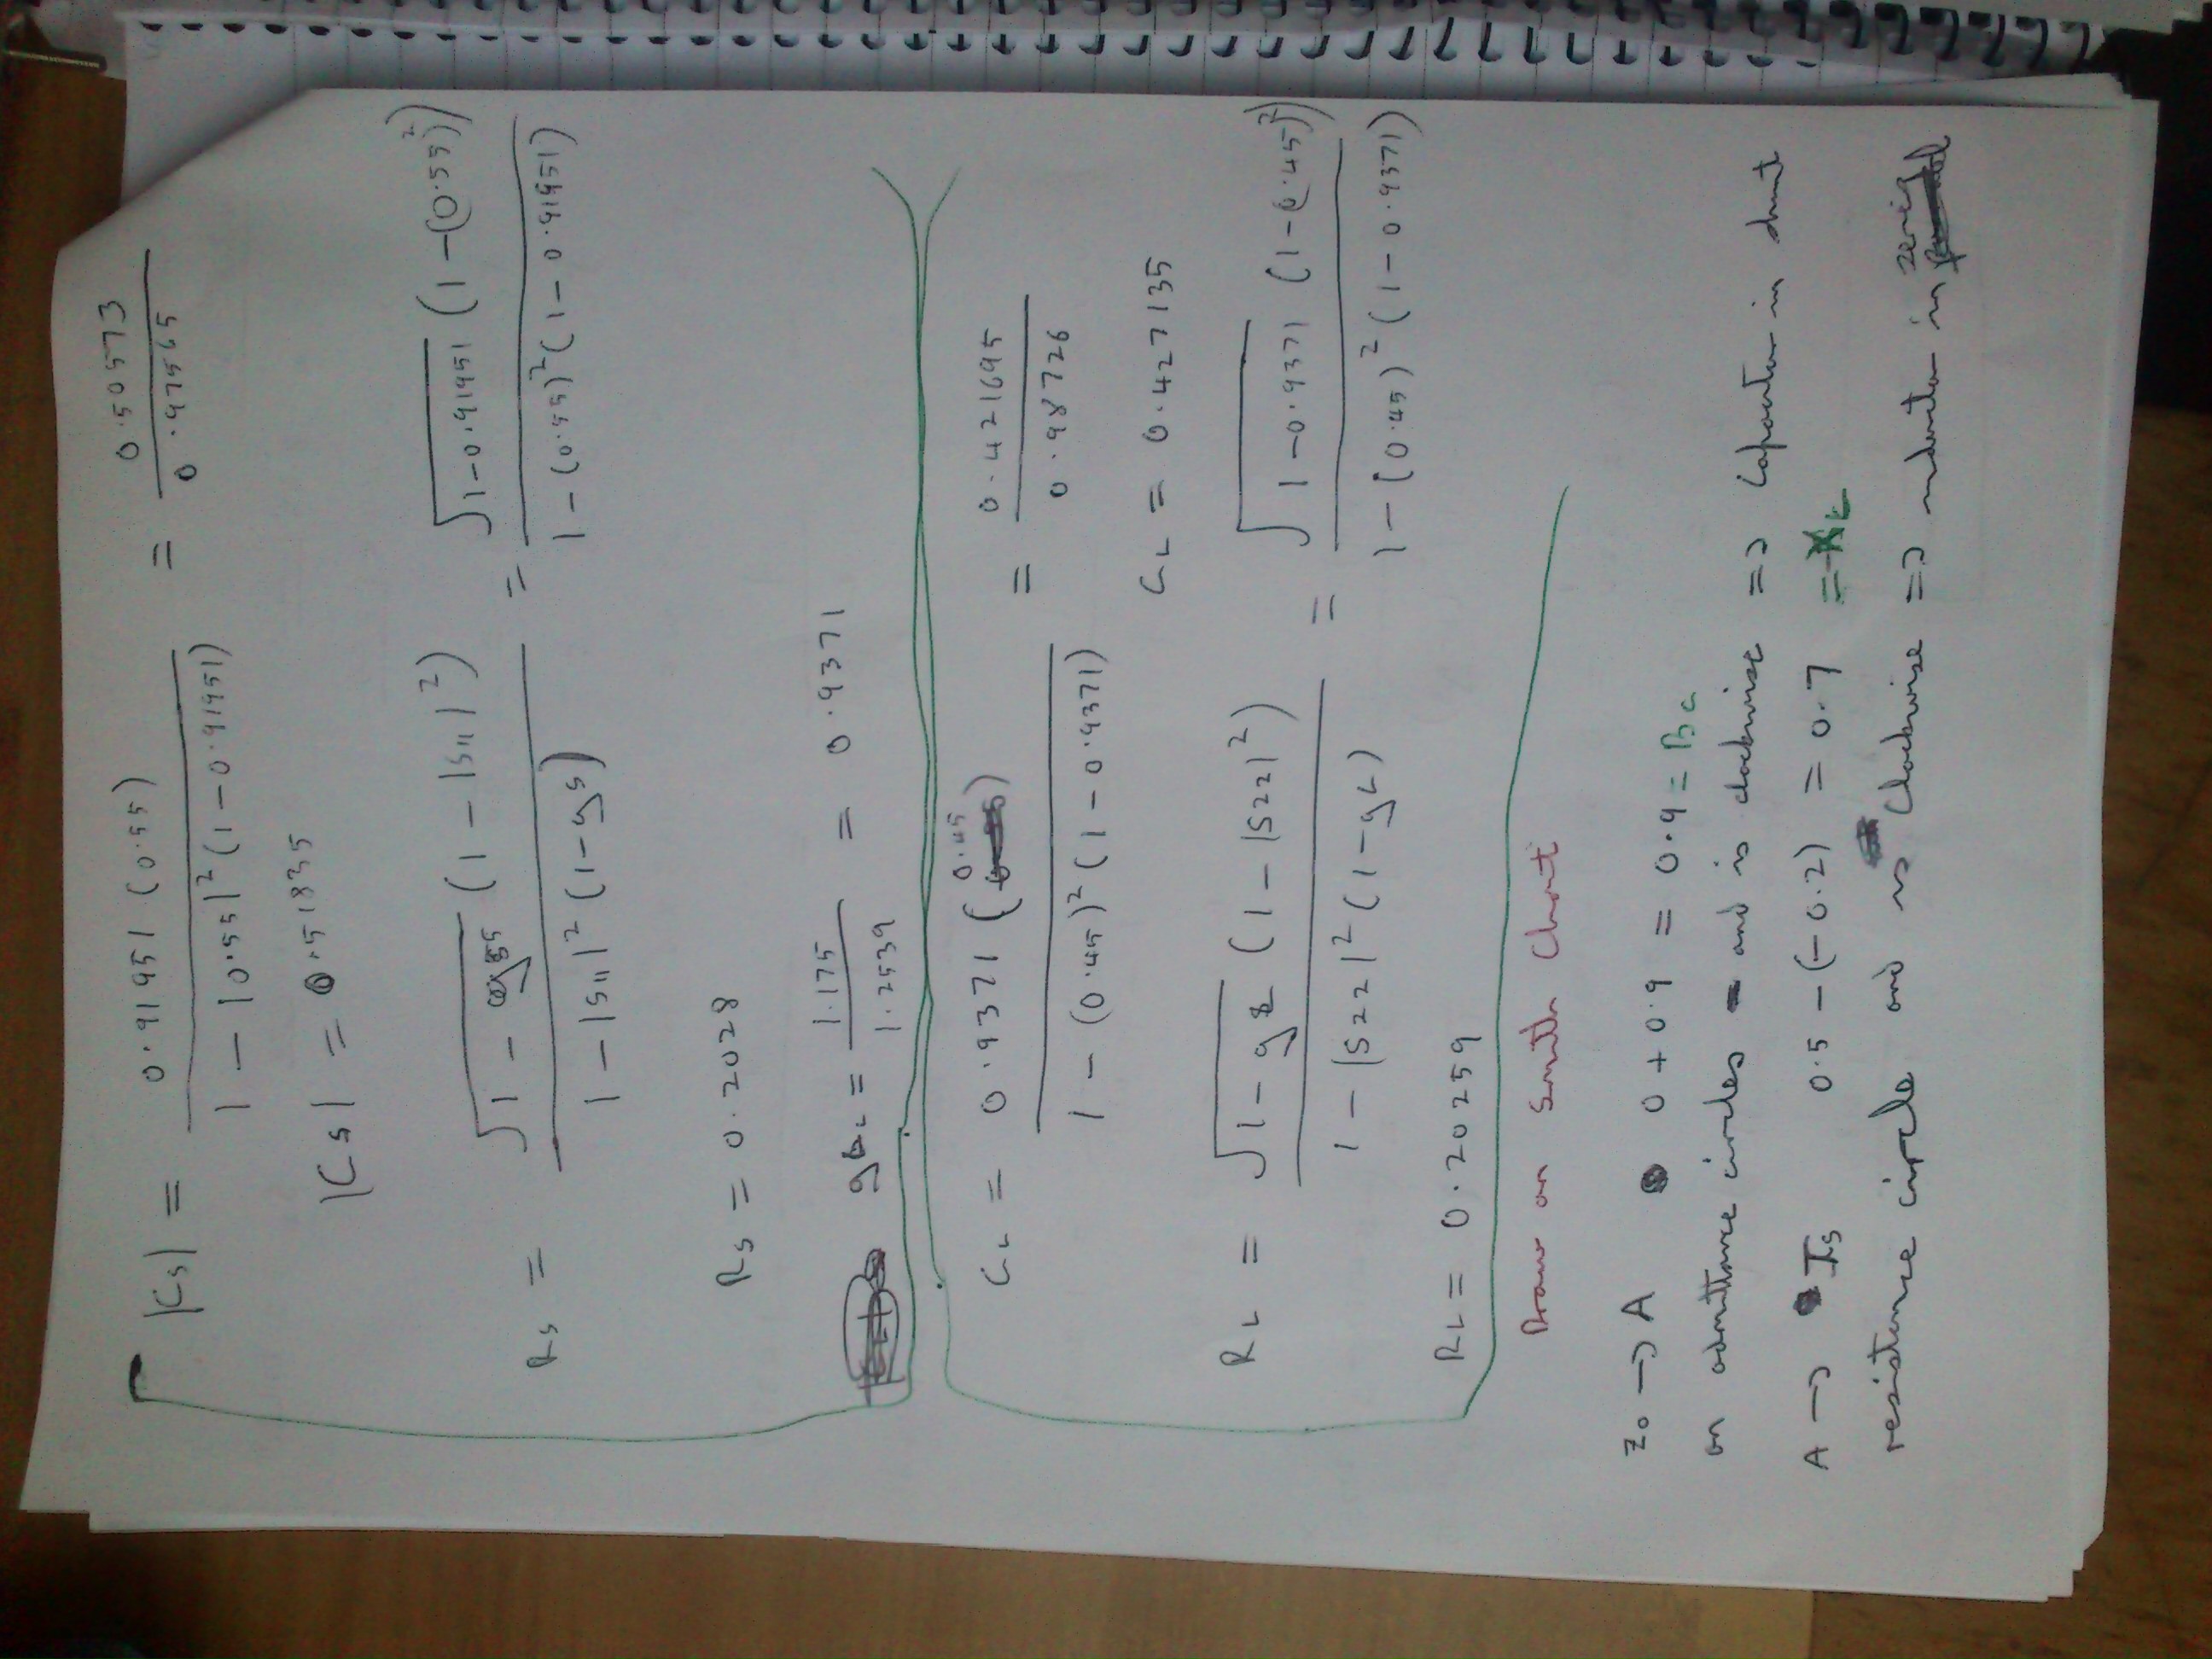 |Cs| = 0.91951 (0.55) / 1 - |0.55|² (1 - 0.91951) = 0.50573 / 0.97565
|Cs| = 0.51835
Rs = √1 - gs (1 - |S11|²) / 1 - |S11|² (1 - gs) = √1 - 0.91951 (1 - (0.55)²) / 1 - (0.55)² (1 - 0.91951)
Rs = 0.2028
gL = 1.175 / 1.2539 = 0.9371
CL = 0.9371 (0.45) / 1 - (0.45)² (1 - 0.9371) = 0.421695 / 0.98726
CL = 0.427135
RL = √1 - gL (1 - |S22|²) / 1 - |S22|² (1 - gL) = √1 - 0.9371 (1 - (0.45)²) / 1 - (0.45)² (1 - 0.9371)
RL = 0.20259
Draw on Smith Chart
Zo → A 0 + 0.9 = 0.9 = Bc
on admittance circles and is clockwise => Capacitor in shunt
A → Γs 0.5 - (-0.2) = 0.7 =
resistance circle and is Clockwise => inductor in series